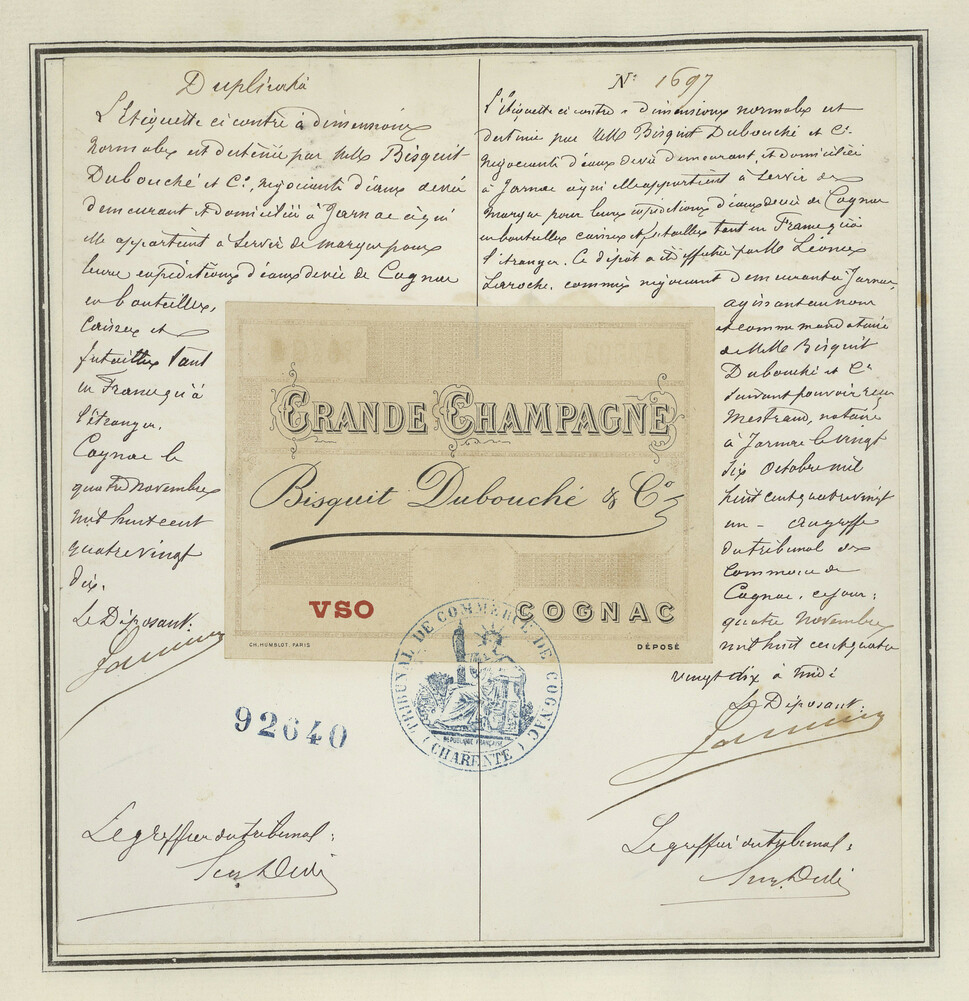 Duplicata
L'étiquette ci contre à dimensions
normales est destinée par MM Bisquit
Dubouché et Cⁱᵉ, négociants d'eaux de vie
demeurant et domiciliés à Jarnac à qui
elle appartient à servir de marque pour
leurs expéditions d'eaux de vie de Cognac
en bouteilles,
Caisses et
futailles tant
en France qu'à
l'étranger.
Cognac le
quatre novembre
mil huit cent
quatre vingt
dix.
Le Déposant:
92640
Le greffier du tribunal:
N° 1697
L'étiquette ci contre à dimensions normales est
destinée par MM Bisquit Dubouché et Cⁱᵉ
négociants d'eaux de vie demeurant et domiciliés
à Jarnac à qui elle appartient à servir de
marque pour leurs expéditions d'eaux de vie de Cognac
en bouteilles caisses et futailles tant en France qu'à
l'étranger. Ce dépôt a été effectué par M. Léonce
Larroche, commis négociant demeurant à Jarnac
agissant au nom
et comme mandataire
de MM Bisquit
Dubouché et Cⁱᵉ
suivant pouvoir reçu
Mestraud, notaire
à Jarnac le vingt
dix Octobre mil
huit cent quatre vingt
un - au greffe
du tribunal de
Commerce de
Cognac, ce jour:
quatre novembre
mil huit cent quatre
vingt dix à midi
Le Déposant:
Le greffier du tribunal:
GRANDE CHAMPAGNE
Bisquit Dubouché & Cº
VSO
COGNAC
CH. HUMBLOT, PARIS
DÉPOSÉ
TRIBUNAL DE COMMERCE DE COGNAC
RÉPUBLIQUE FRANÇAISE
(CHARENTE)